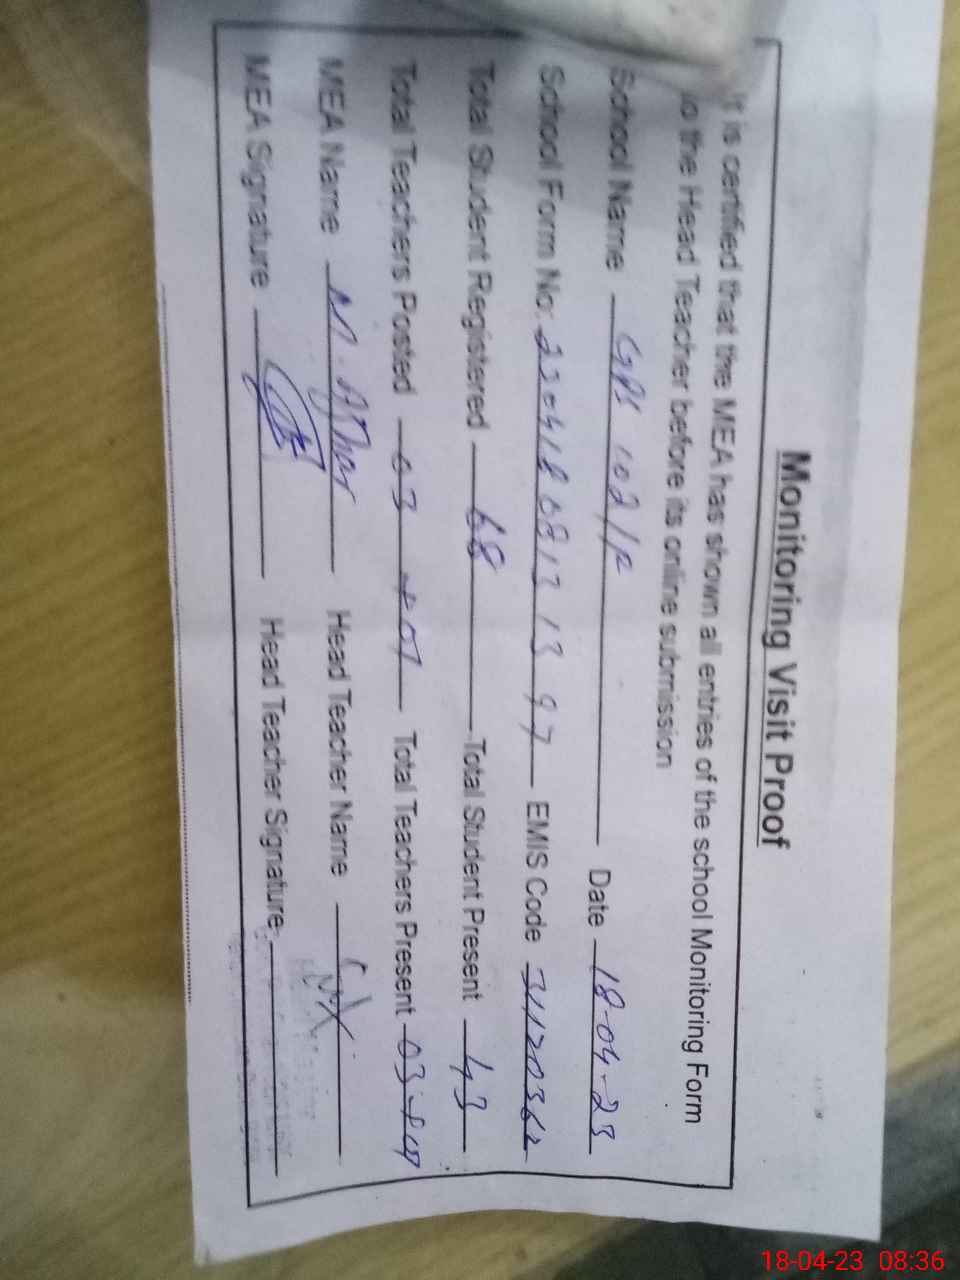 Monitoring Visit Proof
It is certified that the MEA has shown all entries of the school Monitoring Form
to the Head Teacher before its online submission
School Name GPS 102/P Date 18-04-23
School Form No: EMIS Code 31120362
Total Student Registered 68 Total Student Present 43
Total Teachers Posted 03 +01 Total Teachers Present 03+01
MEA Name M. Azhar Head Teacher Name
MEA Signature Head Teacher Signature
18-04-23 08:36